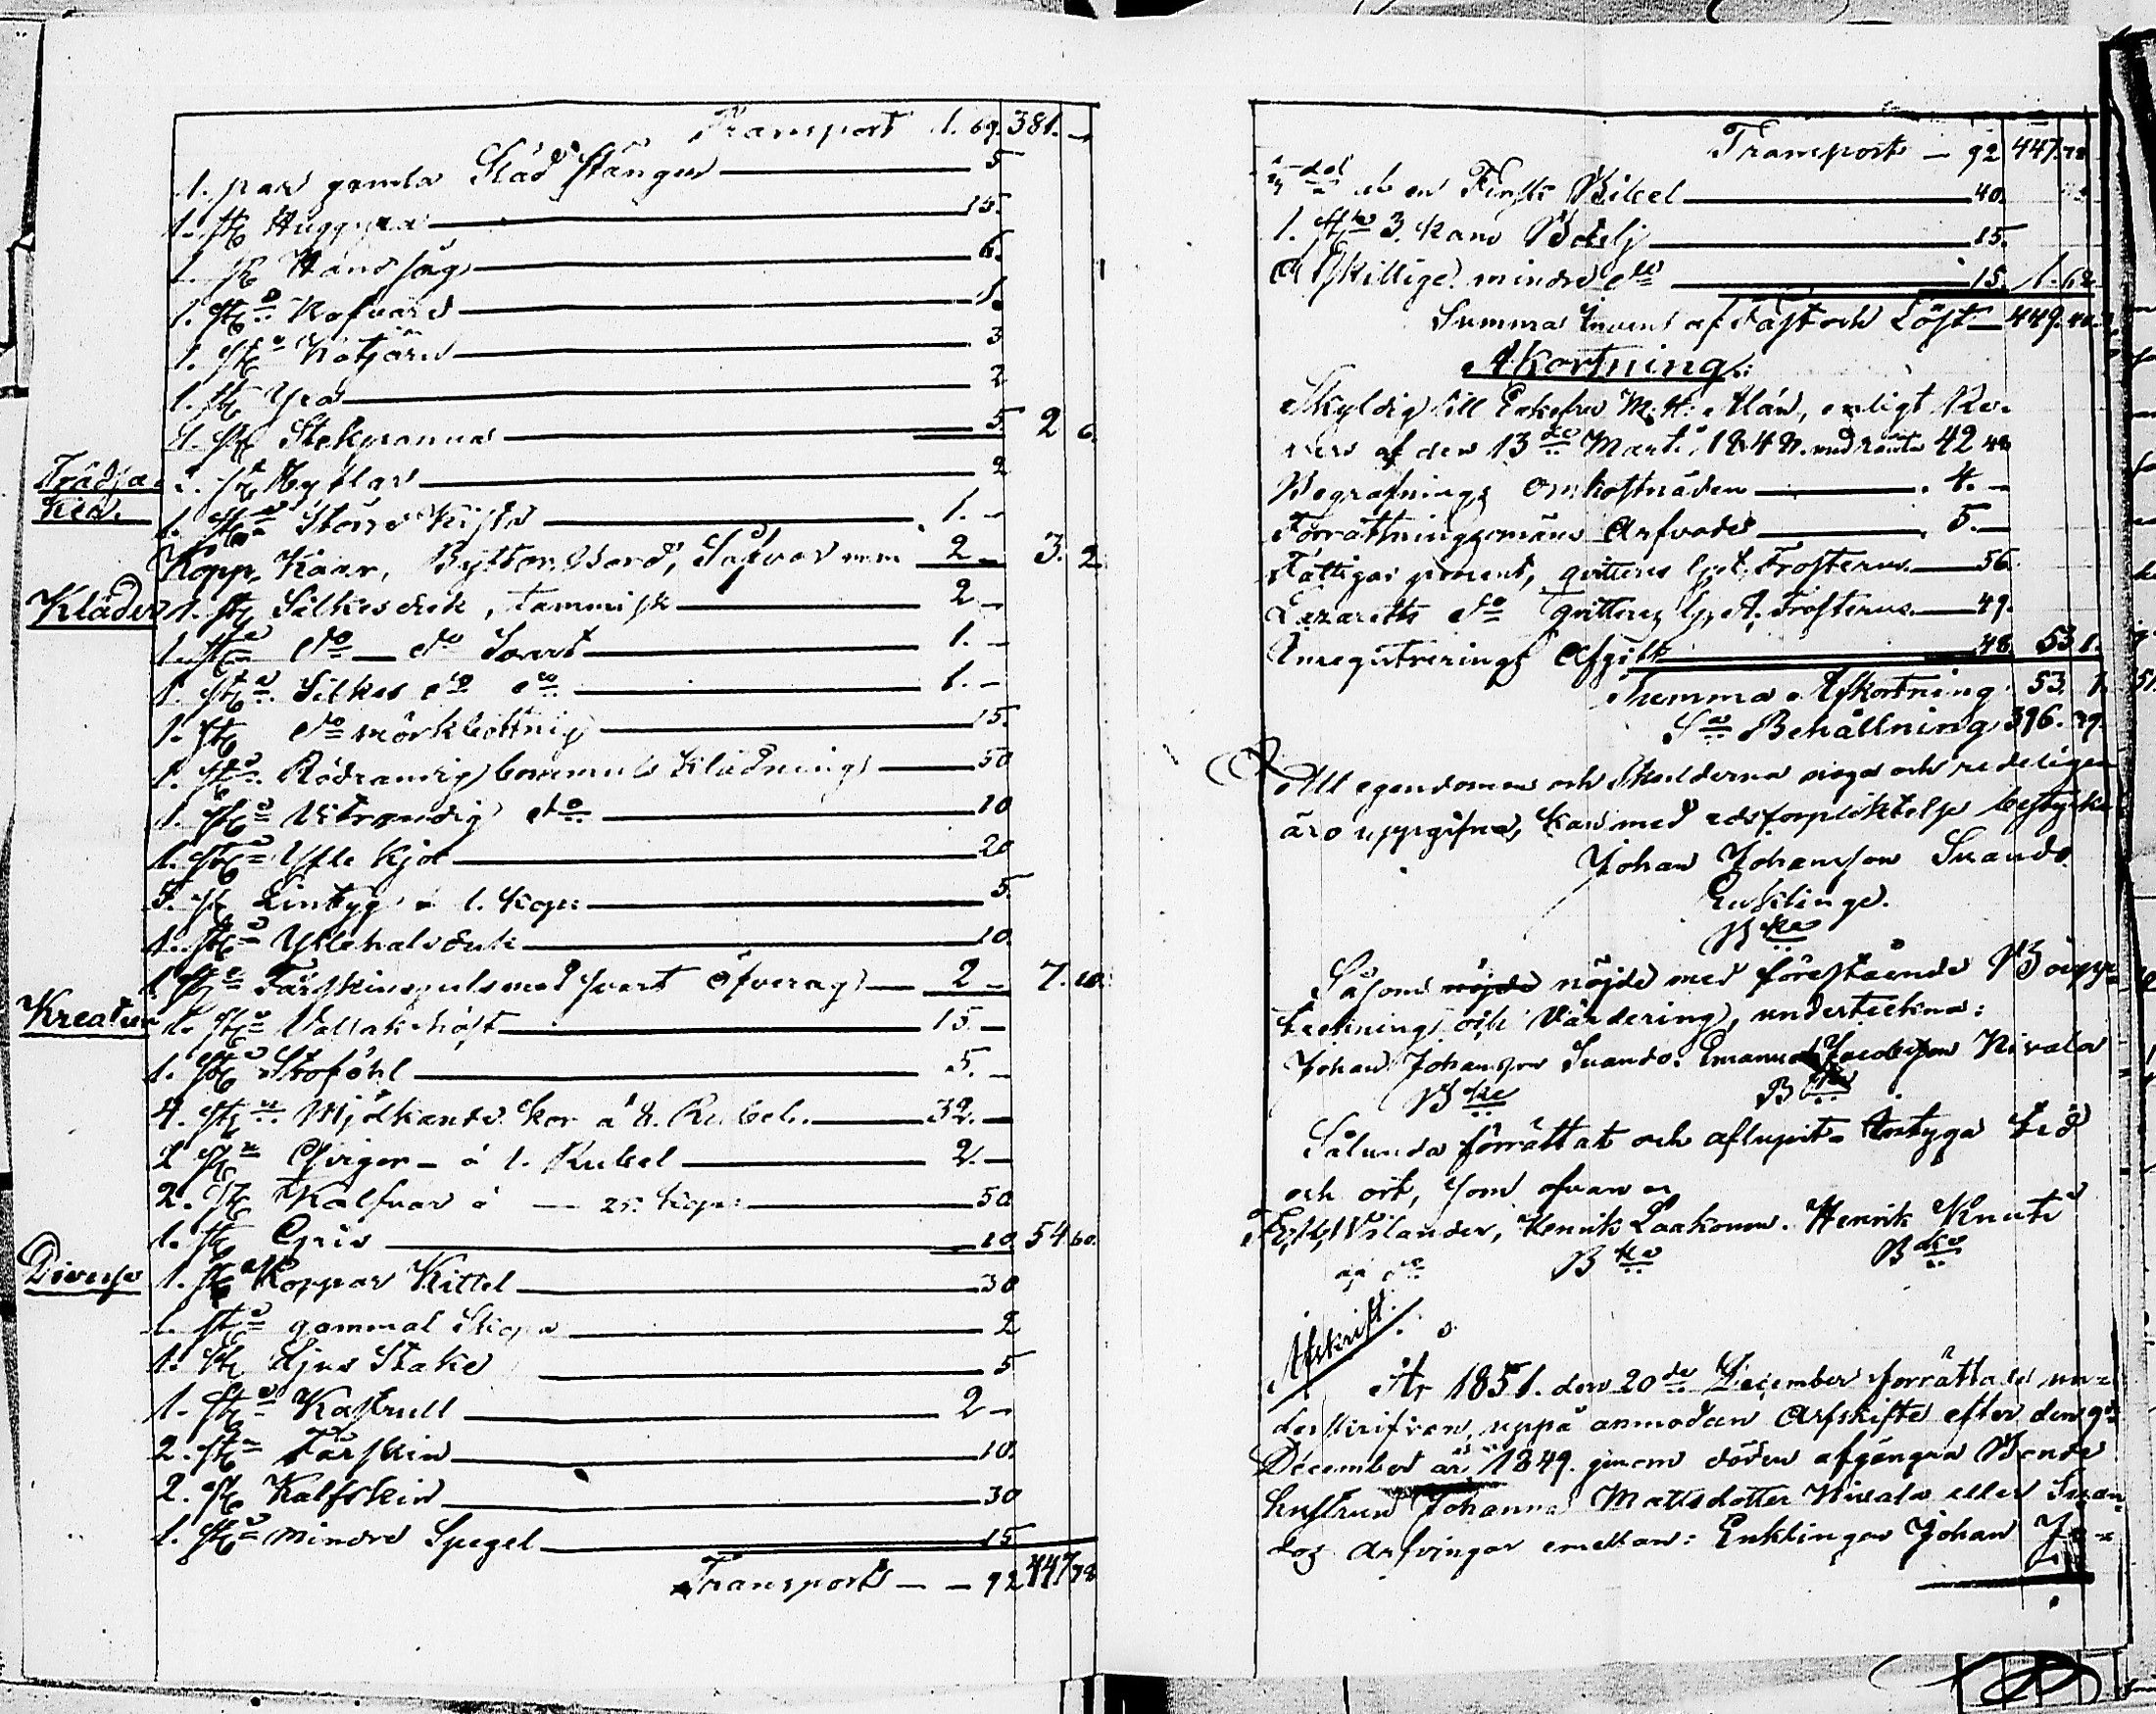 Transport 1. 69. 381. –
1. par gamla Släd Stänger 5
1. st Huggyxa 15.
1. st Handsåg 6.
1. st Kofvard 1.
1. st 3
1. st Yxa 2
1. st Stekpanna 5. 2 6.
Trädsa- 2. st Byttar 2
ker. 1. st Större Kista 1. –
Kopp, Kaar, Byttor, Bord, Säfvar m m 2 – 3. 2
Kläder 1. st Silkesduk, Cammisk 2 –
1. st do – do Svart 1. –
1. st Silkes do do 1. –
1. st do mörkbottnig 15.
1. st Rödrandig bommuls Klädning 50
1. st Hvitrandig do 10
1. st Ylle Kjol 20
5. st Lintyg à 1. Kop: 5.
1. st Yllehalsduk 10.
1 st Fårskinspels med svart öfverdrag 2 – 7. 10.
Kreatur 1. st Vallak häst 15. –
1. st Stoföhl 5. –
4. st Mjölkande kor à 8. Rubel. 32. –
2 st Qvigor – à 1. Rubel 2. –
2. st Kalfvar à – 25. Kop: 50
1. st Gris 10 54 60.
Diverse 1. st Koppar Kittel 30
1. st gammal Skopa 2
1. st Ljus Stake 5
1. st Kastrull 2 –
2. st Fårskin 10.
2. st Kalfskin 30
1. st mindre Spegel 15
Transport – – 92 447 78
Transport – 92 447. 78
del af en Finsk Bibel 40.
1. st 3. Kans Bötlj 15.
Åtskillige mindre do 15. 1. 62
Summa Invent af Fast och Löst 449. 40.
Afkortning:
Skyldig till Enkefru M: H: Alán, enligt Re-
vers af den 13de Marti 1848. med ränta 42 48
Begrafnings Omkostnaden 4. –
Förrättningsmäns Arfvode 5. –
Fattigas procent, qvitteras Frosterus 56.
Lazaretts do qvitteras A. Frosterus 49.
Inregistrerings Afgift 48 53 1.
Summa Afkortning 53. 1.
Sa Behållning 396. 39.
All egendomen och Skulderna noga och redeligen
äro uppgifna, kan med edsförpliktelse bestyrka
Johan Johansson Suando
Enkling.
B ke
Såsom nöjde nöjde med förestående Boupp-
teckning och Värdering, underteckna:
Johan Johansson Suando. Emanuel Jacobsson Nivala
B ke B ke
Sålunda förrättat och aflupit. Intyga tid
och ort, som ofvan
Vilander, Henrik Laakonen. Henrik Knuti
B ke B ke
Afskrift.
År 1851. den 20de December förrättade un-
derskrifven, uppå anmodan Arfskifte efter den 9de
December år 1849. genom döden afgångna Bonde
hustrun Johanna Mattsdotter Nivala eller Suan-
dos Arfvingar emellan: Enklingen Johan Jo-